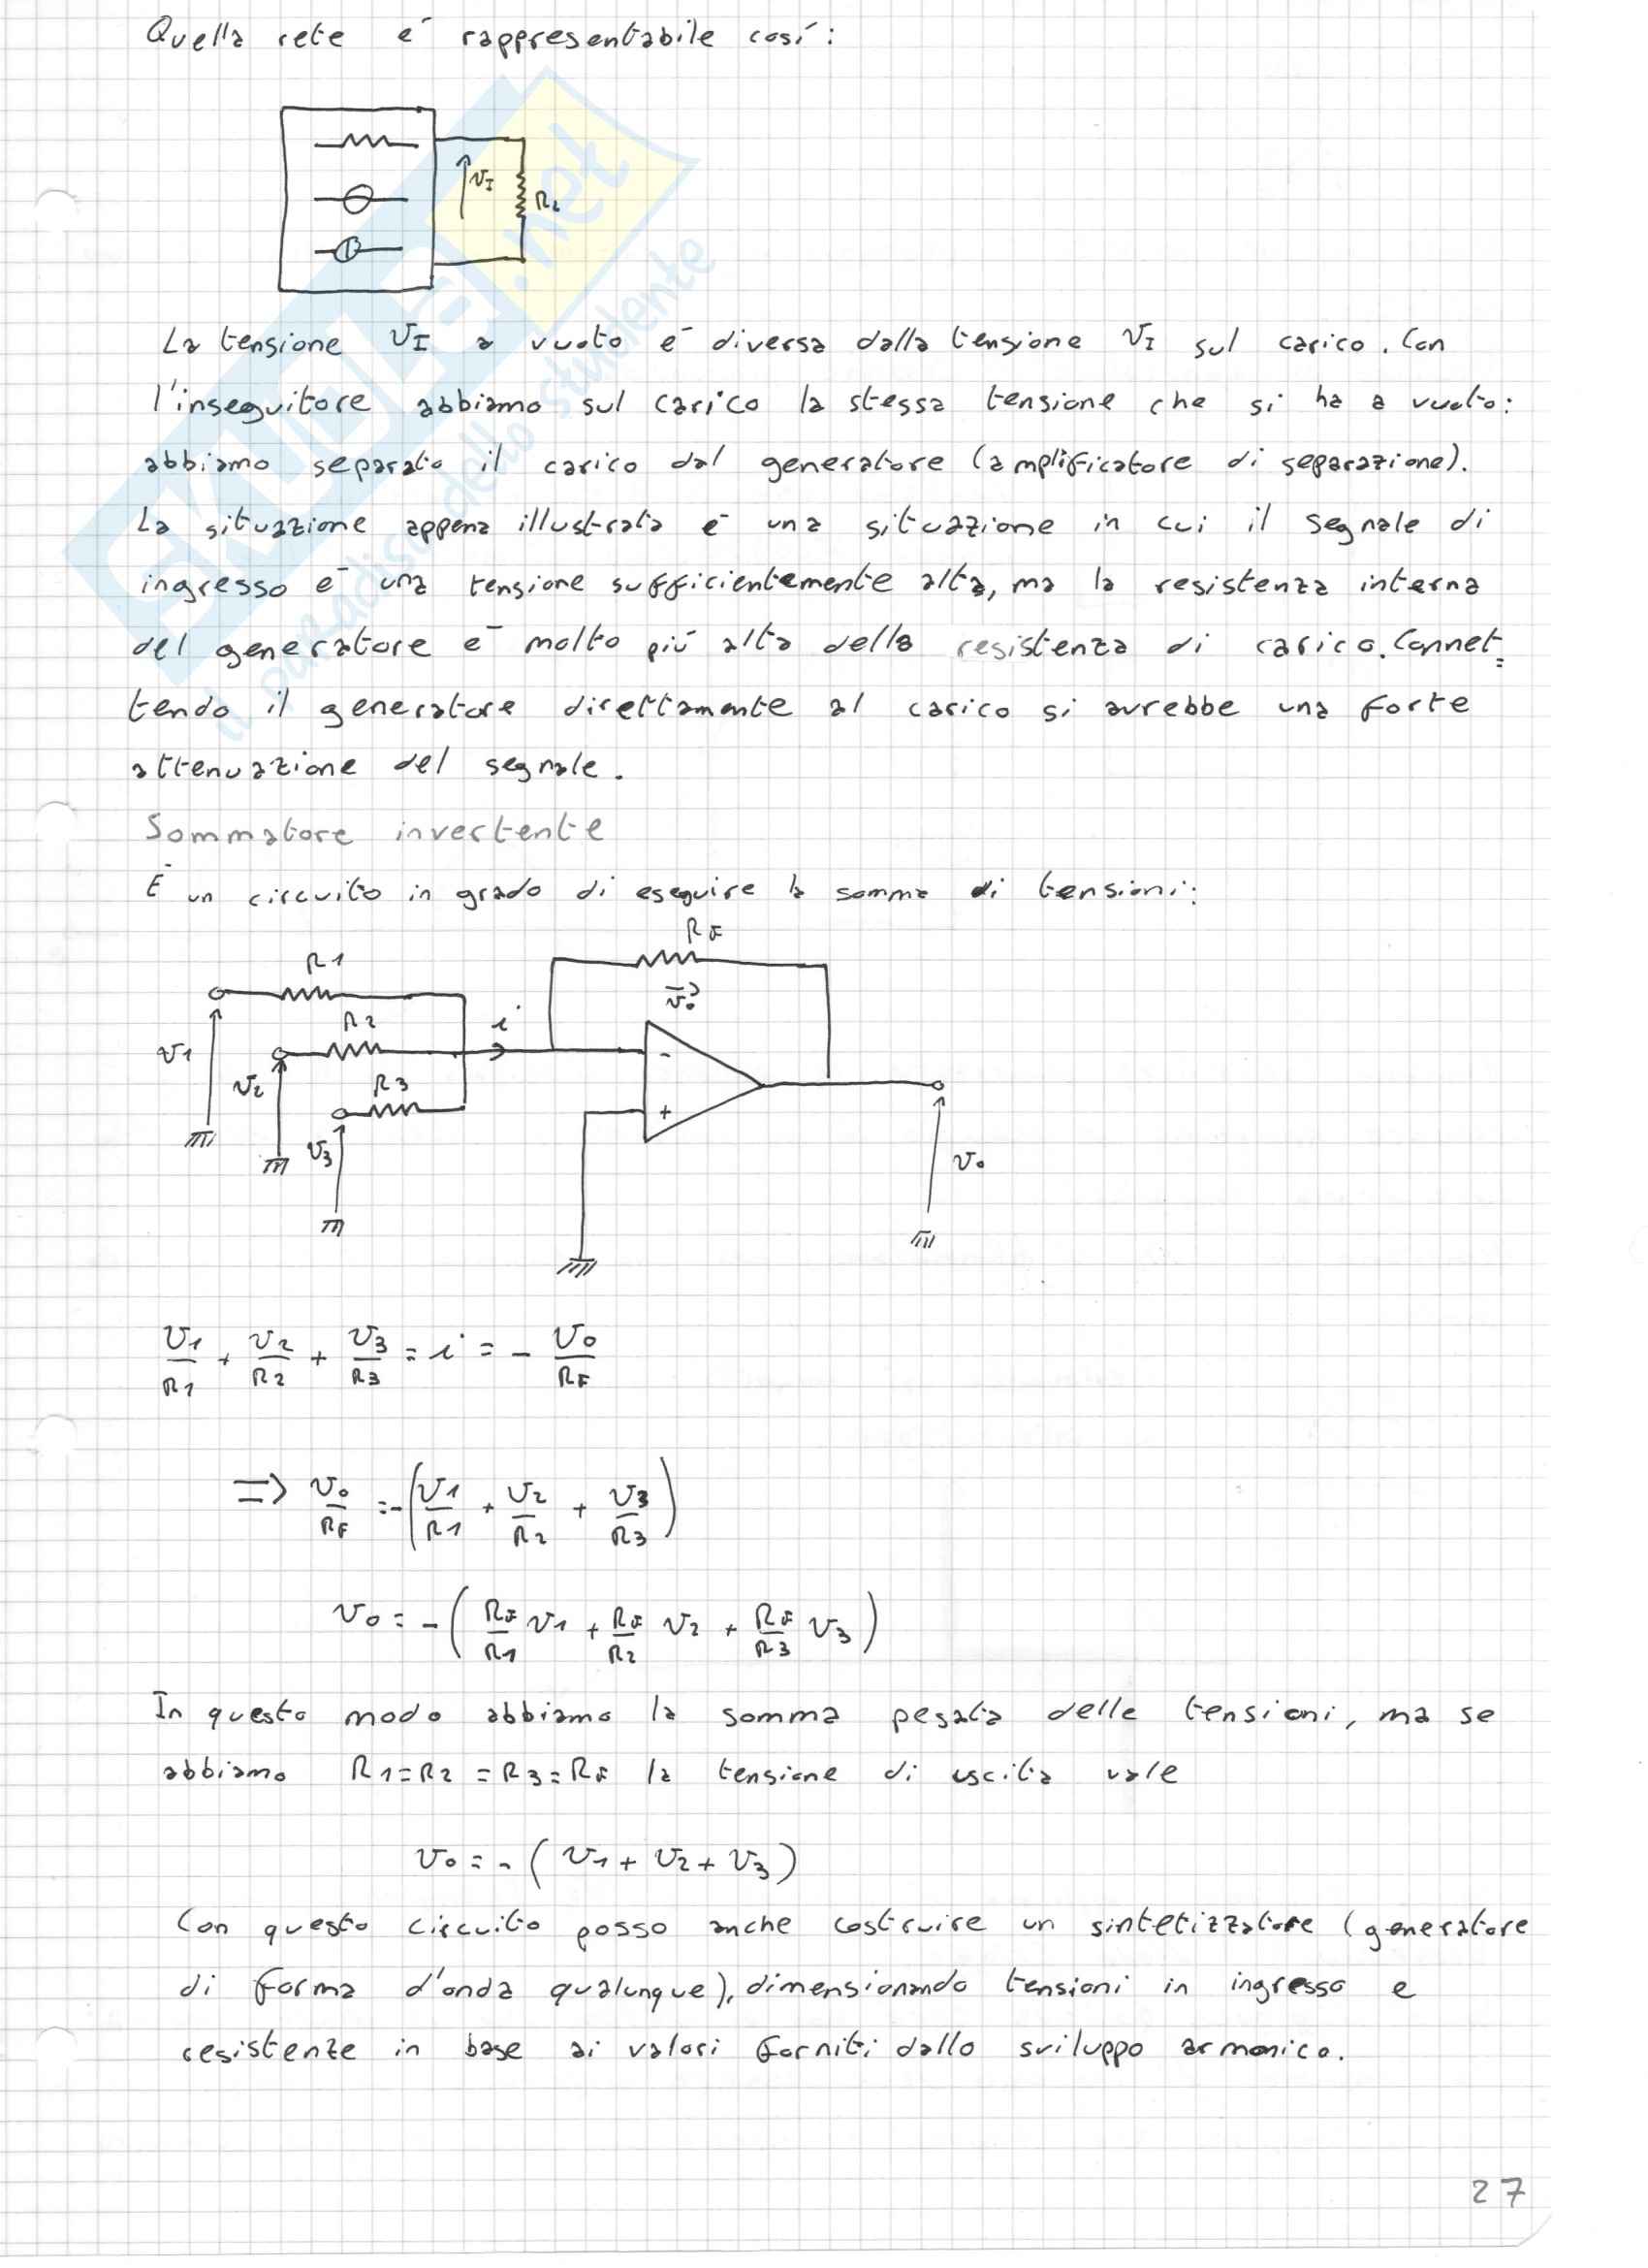 Quella rete é rappresentabile cosí:
vI
RL
La tensione vI a vuoto é diversa dalla tensione vI sul carico. Con
l'inseguitore abbiamo sul carico la stessa tensione che si ha a vuoto:
abbiamo separato il carico dal generatore (amplificatore di separazione).
La situazione appena illustrata é una situazione in cui il segnale di
ingresso é una tensione sufficientemente alta, ma la resistenza interna
del generatore é molto piú alta della resistenza di carico. Connet=
tendo il generatore direttamente al carico si avrebbe una forte
attenuazione del segnale.
Sommatore invertente
É un circuito in grado di eseguire la somma di tensioni:
RF
R1
vo
R2
i
v1
v2
R3
-
+
v3
vo
v1/R1 + v2/R2 + v3/R3 = i = - vo/RF
=> vo/RF = -(v1/R1 + v2/R2 + v3/R3)
vo = -(RF/R1 v1 + RF/R2 v2 + RF/R3 v3)
In questo modo abbiamo la somma pesata delle tensioni, ma se
abbiamo R1=R2=R3=RF la tensione di uscita vale
vo = -(v1 + v2 + v3)
Con questo circuito posso anche costruire un sintetizzatore (generatore
di forma d'onda qualunque), dimensionando tensioni in ingresso e
resistenze in base ai valori forniti dallo sviluppo armonico.
27
SKUOLA.net
il paradiso dello studente